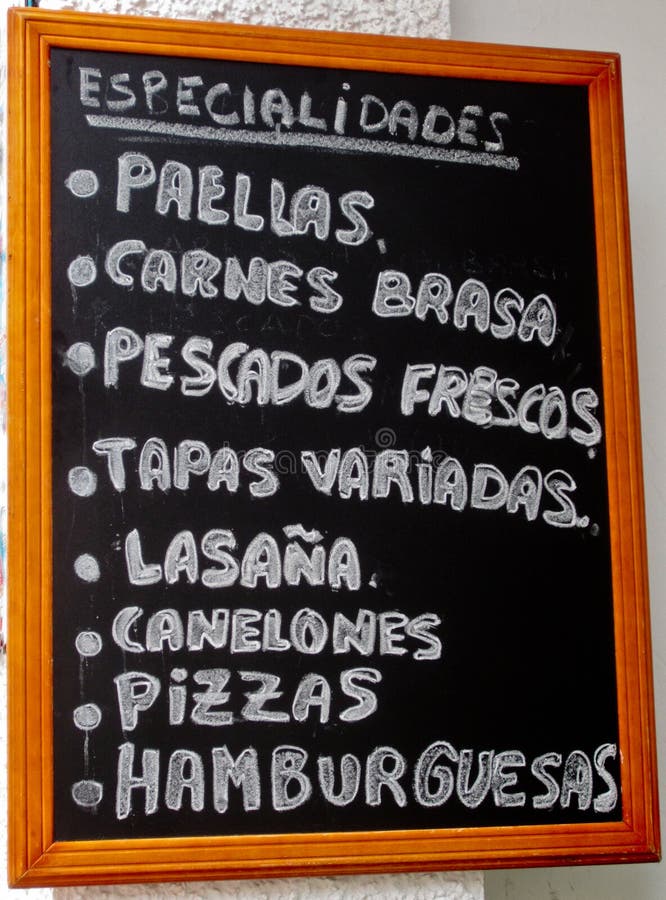 ESPECIALIDADES
• PAELLAS.
• CARNES BRASA
• PESCADOS FRESCOS
• TAPAS VARIADAS..
• LASAÑA.
• CANELONES
• PIZZAS
• HAMBURGUESAS